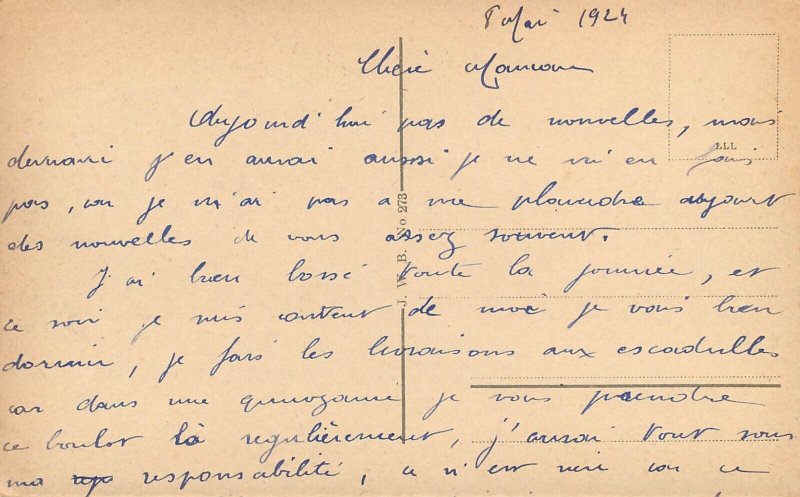 8 Mai 1924
Chère Maman
Aujourd'hui pas de nouvelles, mais
demain j'en aurai aussi je ne m'en fais
pas, car je n'ai pas a me plaindre ayant
des nouvelles de vous assez souvent.
J'ai bien bossé toute la journée, et
ce soir je suis content de moi je vais bien
dormir, je fais les livraisons aux escadrilles
car dans une quinzaine je vais prendre
ce boulot là regulièrement, j'aurai tout sous
ma responsabilité, ce n'est rien car ce
LLL
J. W. B. No 273